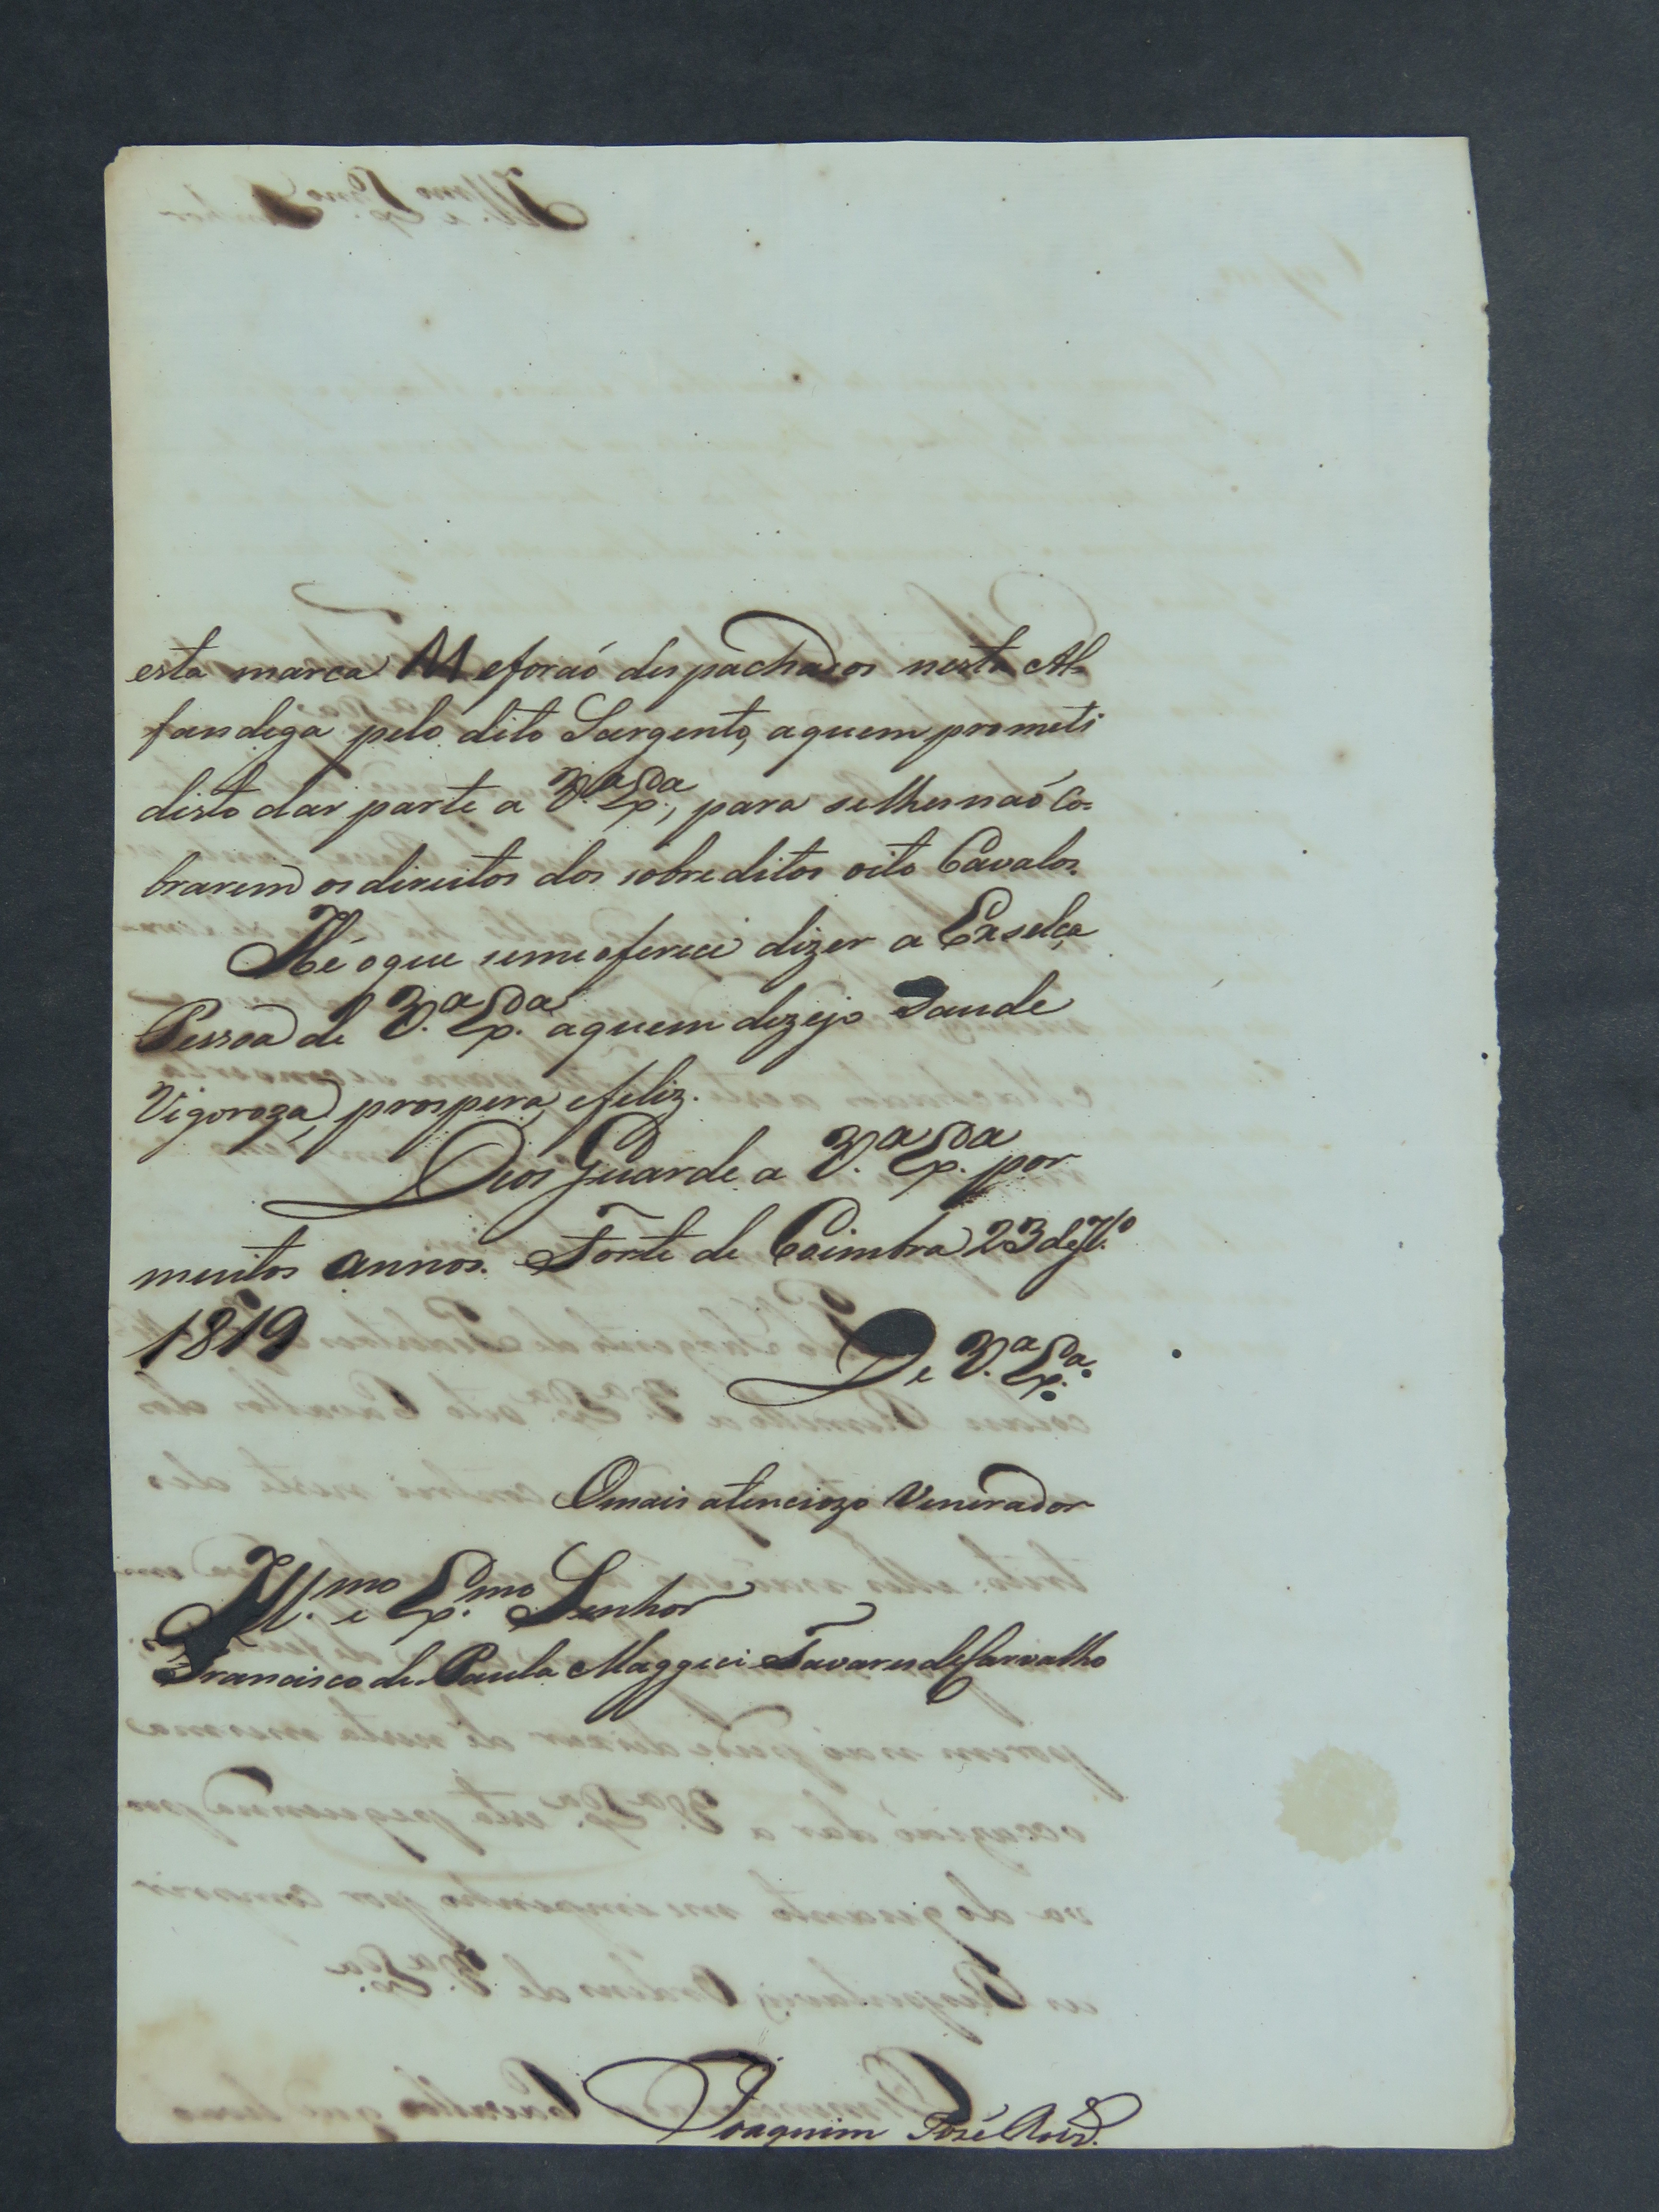 esta marca M eforaó despachados nesta Al=
fandega pelo dito Sargento, aquem prometi
disto dar parte a V.ª Ex.ª, para selhesnaó co=
brarem os direitos dos sobreditos oito Cavalos.
Hé oque semeoferece dizer a Exselça
Pessoa de V.ª Ex.ª aquem dezejo Saude
Vigoroza, prospera, efeliz.
Deos Guarde a V.ª Ex.ª por
muitos annos. Forte de Coimbra 23 de
1819
De V.ª Ex.ª
Omais atenciozo Venerador
Ill.mo e Ex.mo Senhor
Francisco de Paula Maggeci Tavares de Carvalho
Joaquim José